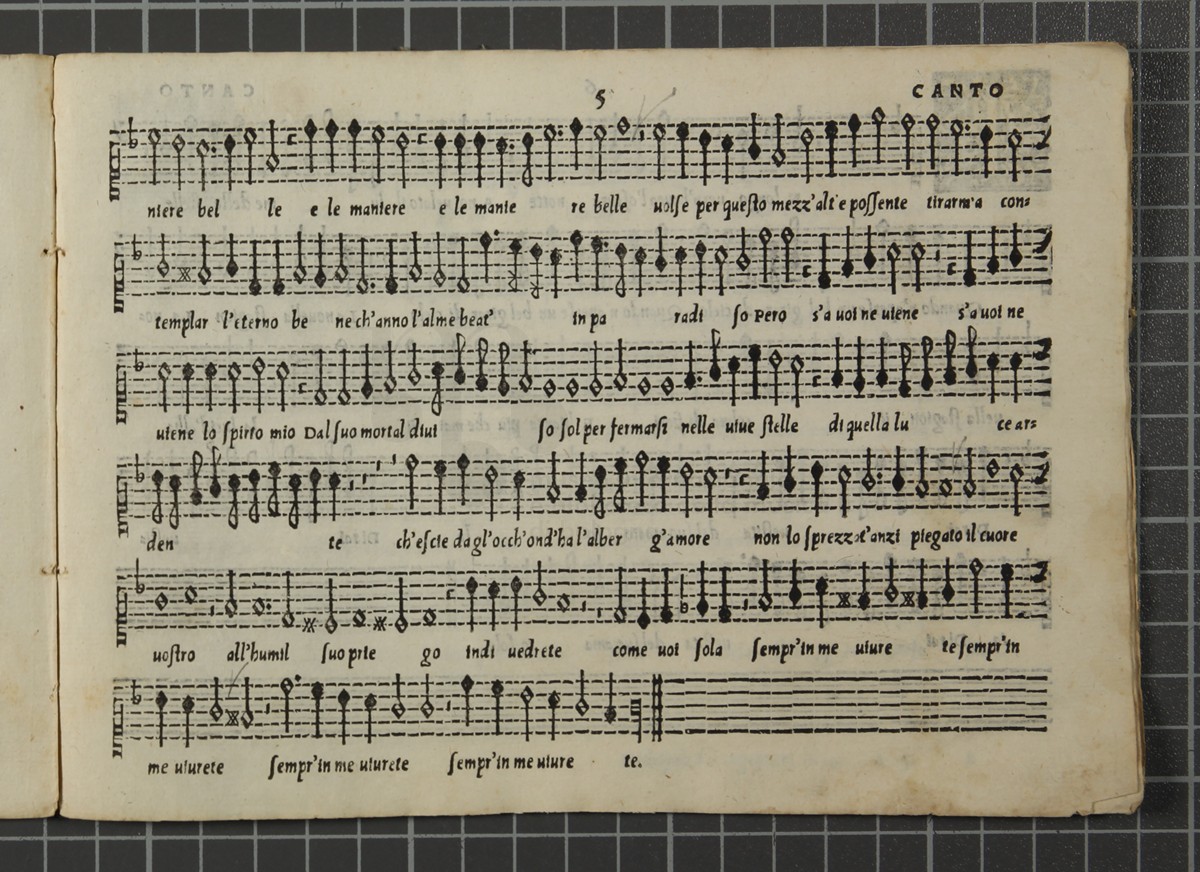 5 CANTO
niere bel le e le maniere e le manie re belle uolſe per queſto mezz'alt'e poſſente tirarm'a con=
templar l'eterno be ne ch'anno l'alme beat' in pa radi ſo Pero s'a uoi ne uiene s'a uoi ne
uiene lo ſpirto mio Dal ſuo mortal diui ſo ſol per fermarſi nelle uiue ſtelle di quella lu ce ar=
den te ch'eſcie da gl'occh'ond'ha l'alber g'amore non lo ſprezzat'anzi piegato il cuore
uoſtro all'humil ſuo prie go indi uedrete come uoi ſola ſempr'in me uiure te ſempr'in
me uiurete ſempr'in me uiurete ſempr'in me uiure te.